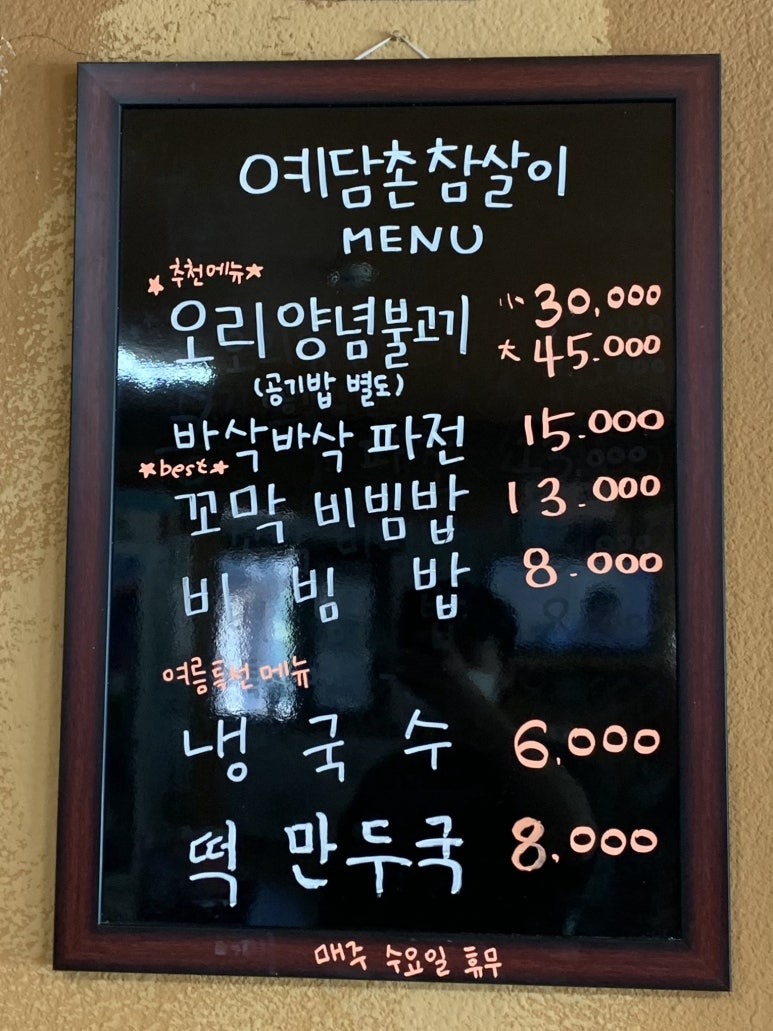 예담촌 참살이
MENU
★ 추천메뉴 ★
오리 양념불고기 小 30,000
大 45.000
(공기밥 별도)
바삭바삭 파전 15.000
★best★
꼬막 비빔밥 13.000
비 빔 밥 8.000
여름특선 메뉴
냉 국 수 6,000
떡 만두국 8,000
매주 수요일 휴무